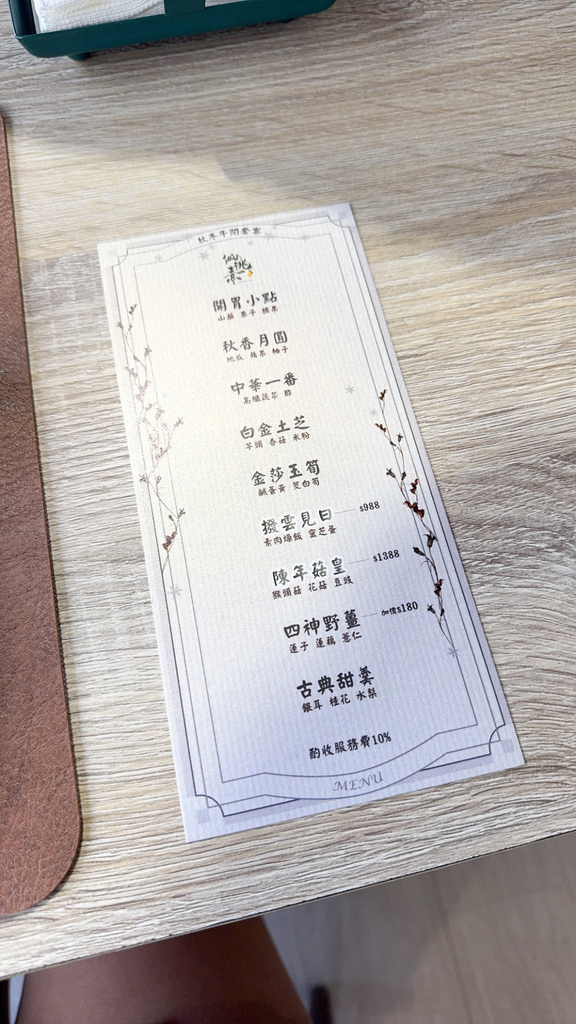 秋冬午間套餐
開胃小點
山藥 栗子 腰果
秋香月圓
地瓜 蘋果 柚子
中華一番
高纖蔬菜 醋
白金土芝
芋頭 香菇 米粉
金莎玉筍
鹹蛋黃 茭白筍
撥雲見日 $988
素肉燥飯 靈芝蛋
陳年菇皇 $1388
猴頭菇 花菇 豆豉
四神野薑 加價$180
蓮子 蓮藕 薏仁
古典甜羹
銀耳 桂花 水梨
酌收服務費10%
MENU